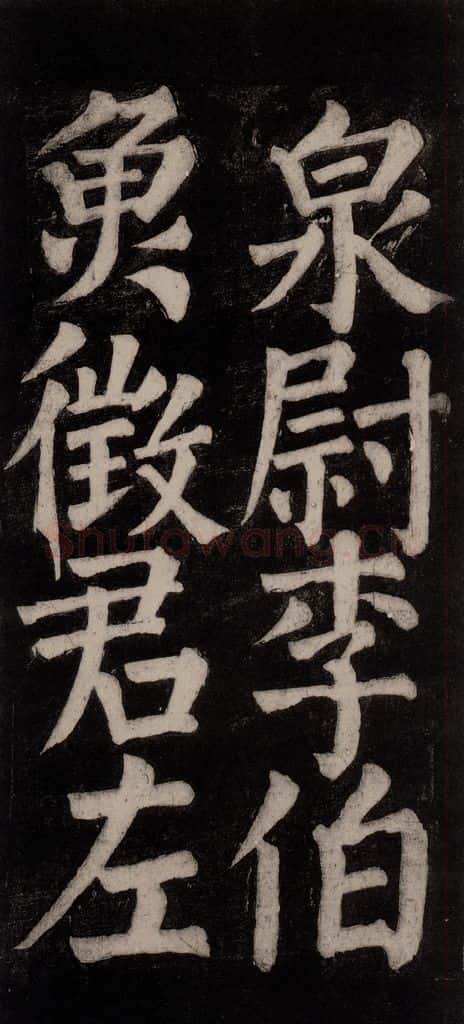 泉尉李伯
魚徵君左
Shufawang.cn